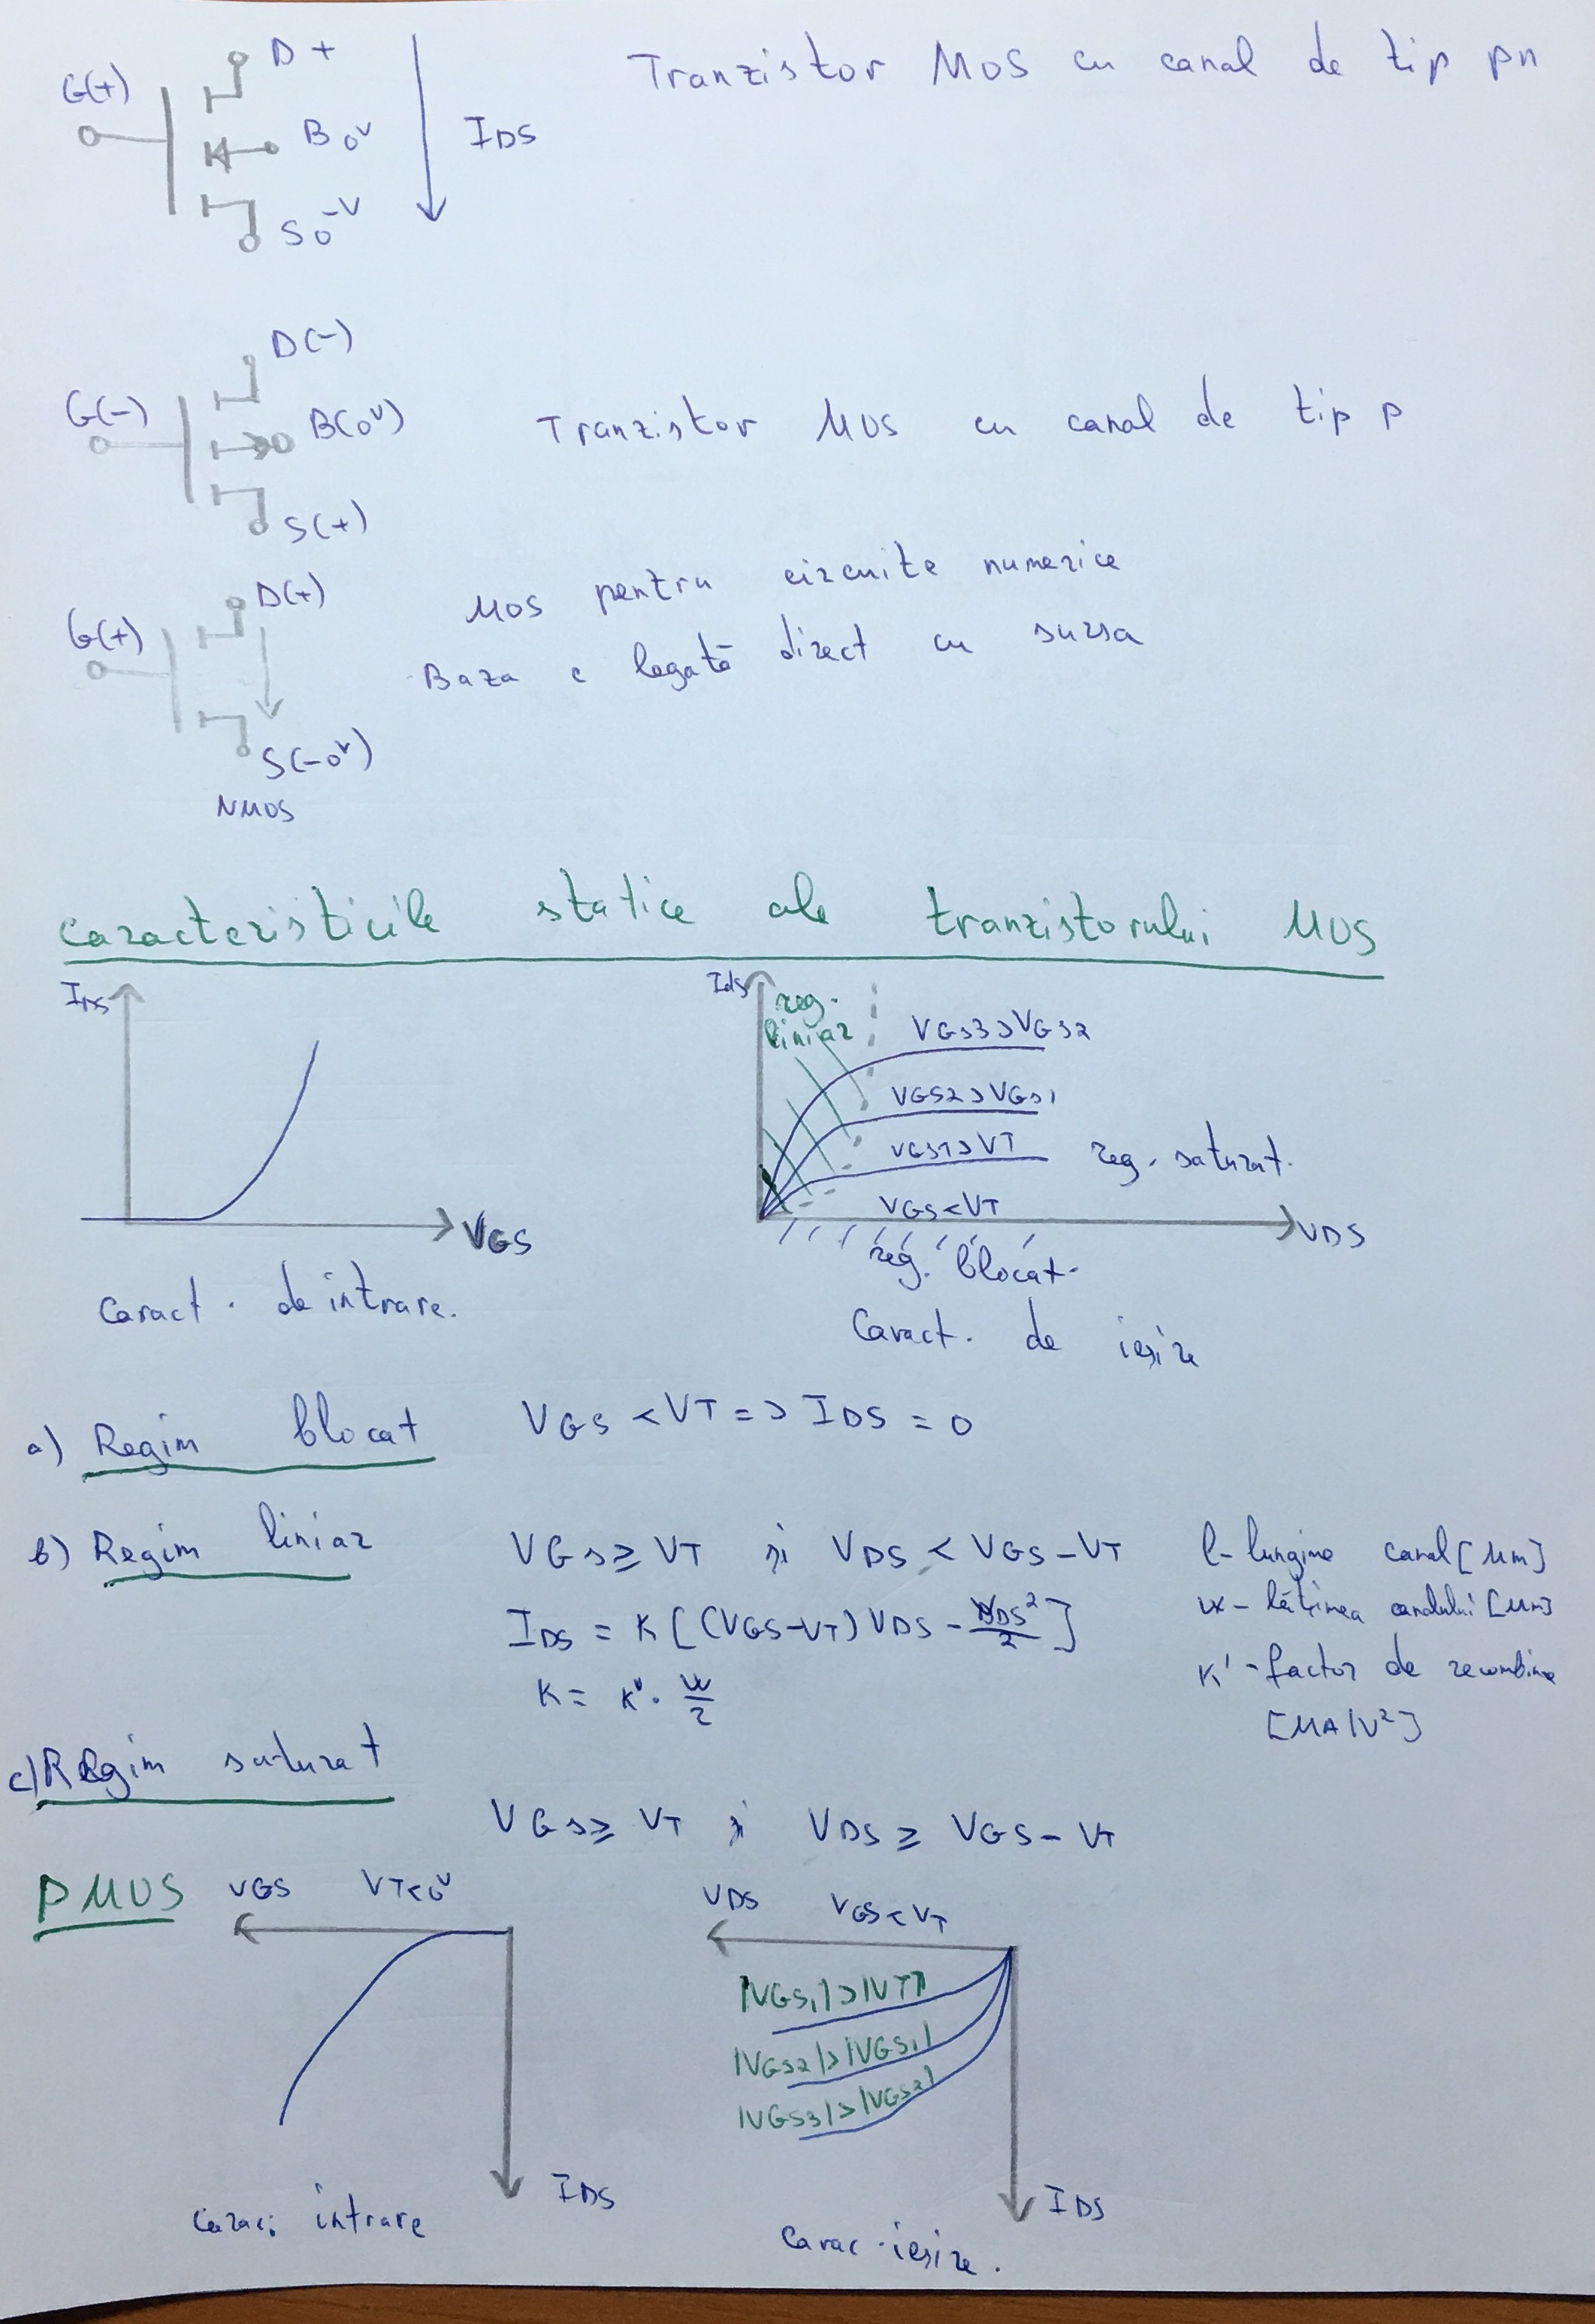 G(+)
D +
B 0V
S 0 -V
IDS
Tranzistor MOS cu canal de tip pn
G(-)
D(-)
B(0V)
S(+)
Tranzistor MOS cu canal de tip p
G(+)
D(+)
S(-0V)
NMOS
MOS pentru circuite numerice
Baza e legată direct cu sursa
Caracteristicile statice ale tranzistorului MOS
IDS
VGS
Caract. de intrare.
Ids
reg.
liniar
VGS3>VGS2
VGS2>VGS1
VGS1>VT
reg. saturat.
VGS<VT
VDS
reg. blocat.
Caract. de iesire
a) Regim blocat VGS<VT => IDS = 0
b) Regim liniar VGS ≥ VT și VDS < VGS-VT
IDS = K[(VGS-VT)VDS - VDS²/2]
K = K'· W/2
l- lungime canal [µm]
W- lățimea canalului [µm]
K'- factor de recombine
[µA/V²]
c) Regim saturat
VGS ≥ VT și VDS ≥ VGS-VT
PMOS
VGS VT<0V
IDS
Carac. intrare
VDS VGS<VT
|VGS1|>|VT|
|VGS2|>|VGS1|
|VGS3|>|VGS2|
IDS
Carac. iesire.